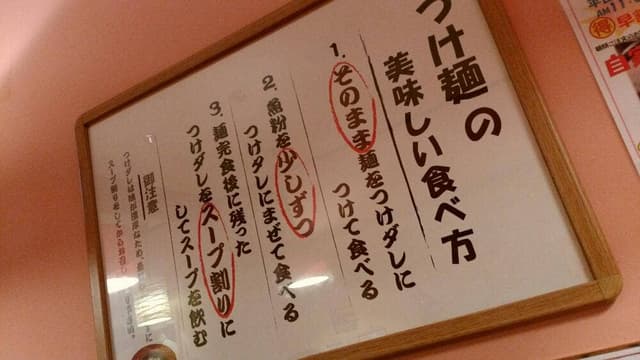 つけ麺の
美味しい食べ方
1. そのまま麺をつけダレに
つけて食べる
2. 魚粉を少しずつ
つけダレにまぜて食べる
3. 麺完食後に残った
つけダレをスープ割りに
してスープを飲む
御注意
つけダレは味が濃厚なため、
スープ割りをしてから
AM11
得 早